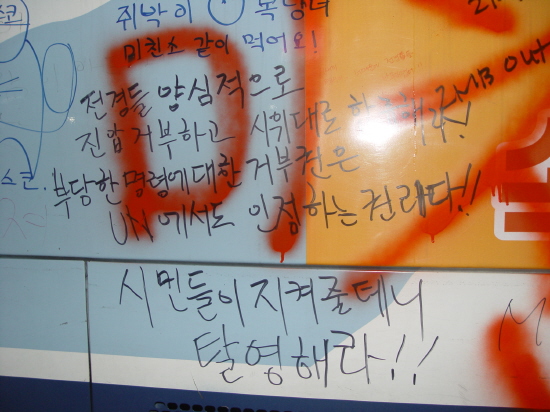 쥐박이 복당녀
미친소 같이 먹어요!
MB out
전경들 양심적으로
진압거부하고 시위대로
부당한 명령에 대한 거부권은
UN에서도 인정하는 권리다!!
스코.
시민들이 지켜줄테니
탈영해라!!